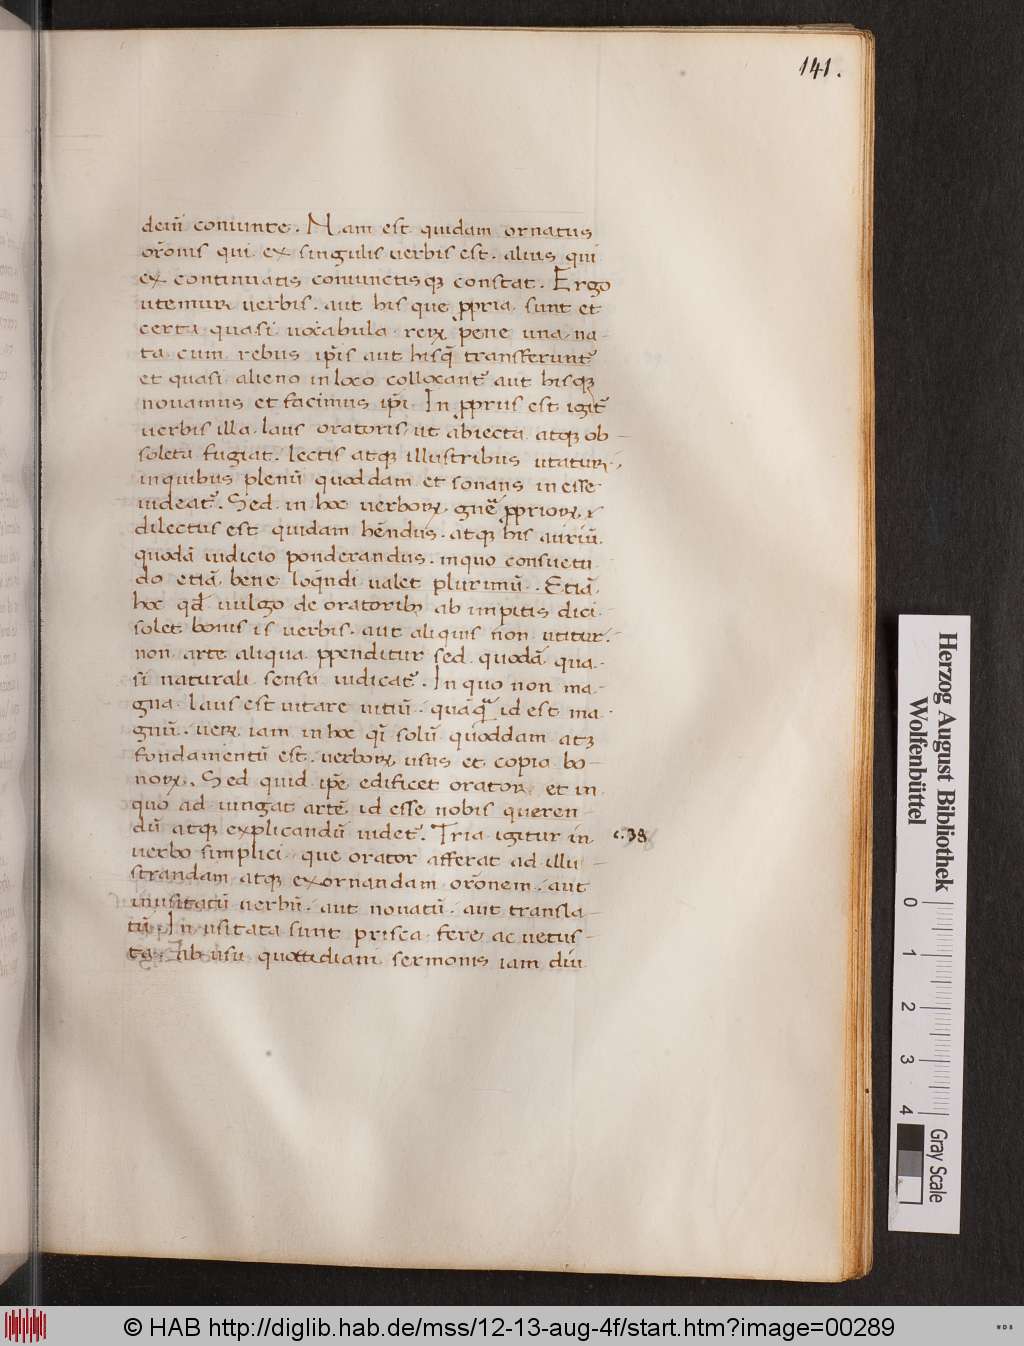 141.
dein̄ coniuncte. Nam est quidam ornatus
or̄onis qui ex singulis verbis est. alius qui
ex continuatis coniunctisqꝫ constat. Ergo
utemur verbis. aut his que ꝓpria sunt et
certa quasi vocabula reꝝ pene una na-
ta cum rebus ip̄is aut hisq̄ transferunt᷑
et quasi alieno in loco collocant᷑ aut hisqꝫ
novamus et facimus ip̄i. In ꝓpriis est igit᷑
verbis illa laus oratoris, ut abiecta atqꝫ ob-
soleta fugiat. lectis atqꝫ illustribus utatur,
in quibus plenū quoddam et sonans in esse
videat᷑. Sed in hoc verboꝝ gn̄e ꝓprioꝝ
dilectus est quidam hēndus. atqꝫ his auriū
quodā iudicio ponderandus. in quo consuetu
do etiā bene loq̄ndi valet plurimū. Etiā
hoc qd̄ vulgo de oratoribꝫ ab impitis dici
solet bonis is verbis. aut aliquis non utitur.
non arte aliqua ꝑpenditur sed quodā qua-
si naturali sensu iudicat᷑. In quo non ma-
gna laus est vitare vitiū. quāqᷓ id est ma-
gnū. veꝝ iam in hoc qī solū quoddam atqꝫ
fondamentū est. verboꝝ usus et copia bo-
noꝝ. Sed quid ip̄e edificet orator et in
quo ad iungat artē id esse nobis queren-
dū atqꝫ explicandū videt᷑. Tria igitur in
c. 38
verbo simplici que orator afferat ad illu-
strandam atqꝫ exornandam or̄onem. aut
inusitatū verbū. aut novatū. aut transla-
tū. In usitata sunt prisca fere ac vetus-
ta. Ab usu quottidiani sermonis iam diu
Herzog August Bibliothek
Wolfenbüttel
0 1 2 3 4
Gray Scale
© HAB http://diglib.hab.de/mss/12-13-aug-4f/start.htm?image=00289